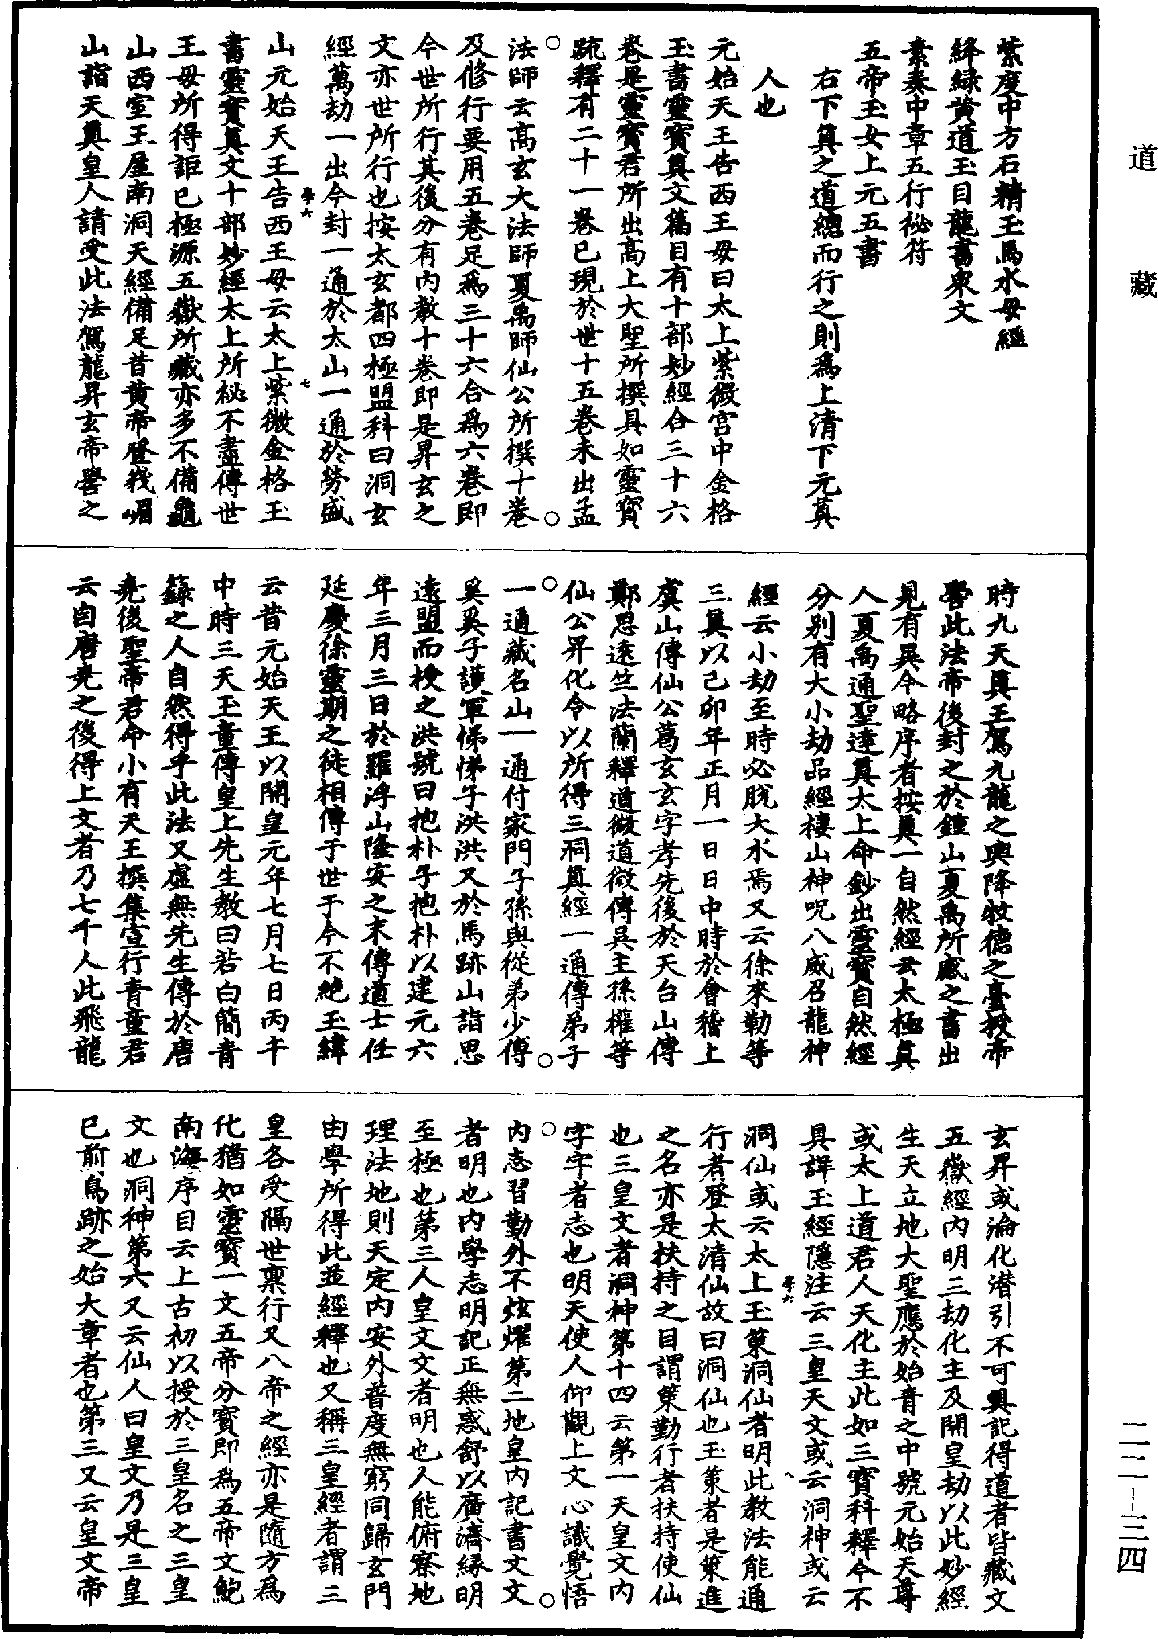 道藏
紫度中方石精玉馬水母經
絳緑黄道玉目龍書衆文
素奏中章五行祕符
五帝玉女上元五書
右下真之道總而行之則爲上清下元真
人也
元始天王告西王母曰太上紫微宫中金格
玉書靈寶真文篇目有十部妙經合三十六
卷是靈寶君所出高上大聖所撰具如靈寶
疏釋有二十一卷已現於世十五卷未出孟
法師云高玄大法師夏禹師仙公所撰十卷
及修行要用五卷足爲三十六合爲六卷即
今世所行其後分有内教十卷即是昇玄之
文亦世所行也按太玄都四極盟科曰洞玄
經萬劫一出今封一通於太山一通於勞盛
山元始天王告西王母云太上紫微金格玉
書靈寶真文十部妙經太上所祕不盡傳世
王母所得詎已極源五嶽所藏亦多不備龜
山西室王屋南洞天經備足昔黄帝登峨嵋
山詣天真皇人請受此法駕龍昇玄帝嚳之
時九天真王駕九龍之輿降牧德之臺授帝
嚳此法帝後封之於鍾山夏禹所感之書出
見有異今略序者按真一自然經云太極真
人夏禹通聖達真太上命鈔出靈寶自然經
分别有大小劫品經棲山神呪八威召龍神
經云小劫至時必脱大水焉又云徐來勒等
三真以己卯年正月一日日中時於會稽上
虞山傳仙公葛玄玄字孝先後於天台山傳
鄭思遠竺法蘭釋道微道微傳吴主孫權等
仙公昇化令以所得三洞真經一通傳弟子
一通藏名山一通付家門子孫與從弟少傅
奚奚子護軍悌悌子洪洪又於馬跡山詣思
遠盟而授之洪號曰抱朴子抱朴以建元六
年三月三日於羅浮山隆安之末傳道士任
延慶徐靈期之徒相傳于世于今不絶玉緯
云昔元始天王以開皇元年七月七日丙午
中時三天玉童傳皇上先生教曰若白簡青
籙之人自然得乎此法又虚無先生傳於唐
堯後聖帝君命小有天王撰集宣行青童君
云自唐堯之後得上文者乃七千人此飛龍
玄昇或淪化潛引不可具記得道者皆藏文
五嶽經内明三劫化主及開皇劫以此妙經
生天立地大聖應於始青之中號元始天尊
或太上道君人天化主此如三寶科釋今不
具譯玉經隱注云三皇天文或云洞神或云
洞仙或云太上玉䇿洞仙者明此教法能通
行者登太清仙故曰洞仙也玉䇿者是䇿進
之名亦是扶持之目謂䇿勤行者扶持使仙
也三皇文者洞神第十四云第一天皇文内
字字者志也明天使人仰觀上文心識覺悟
内志習勤外不炫燿第二地皇内記書文文
者明也内學志明記正無惑舒以廣濟縁明
至極也第三人皇文文者明也人能俯察地
理法地則天定内安外普度無窮同歸玄門
由學所得此並經釋也又稱三皇經者謂三
皇各受隔世禀行又八帝之經亦是隨方爲
化猶如靈寶一文五帝分寶即爲五帝文鮑
南海序目云上古初以授於三皇名之三皇
文也洞神第六又云仙人曰皇文乃是三皇
已前鳥跡之始大章者也第三又云皇文帝
二一二–三四